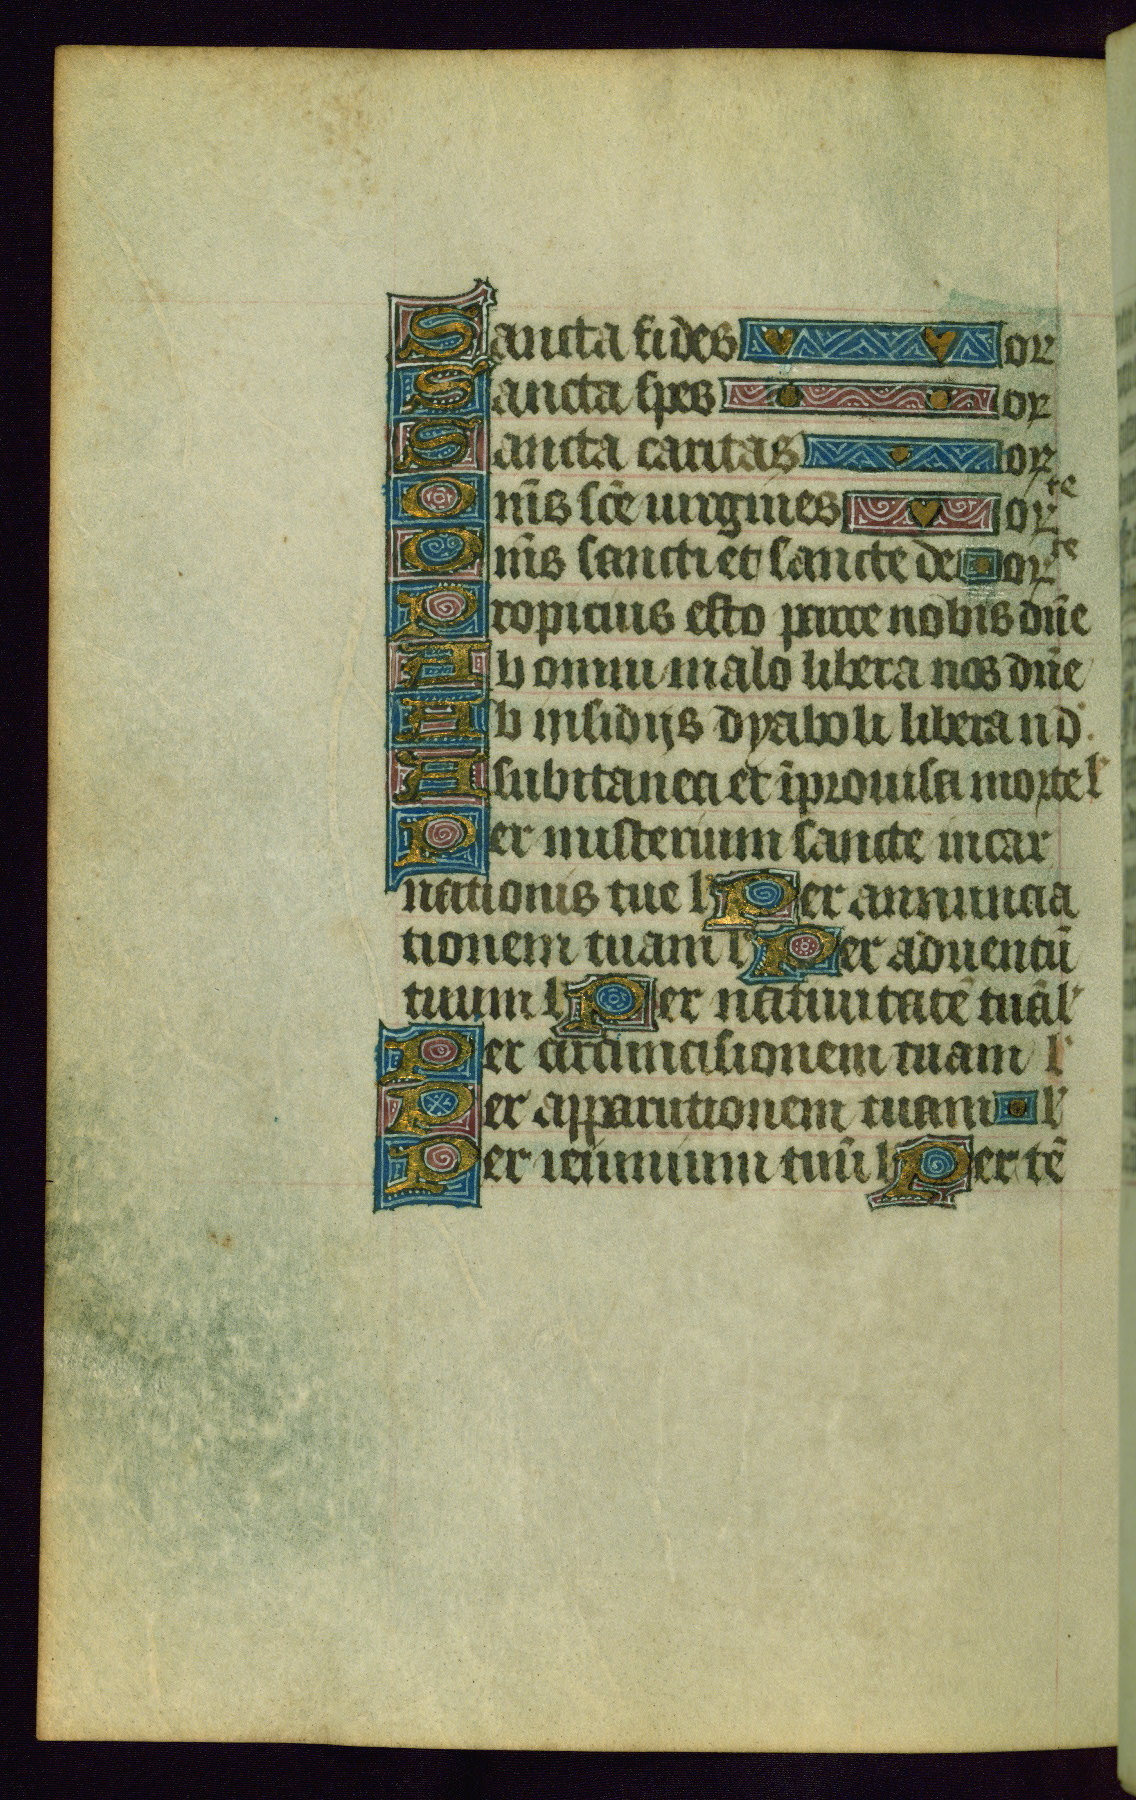 Sancta fides or
Sancta spes or
Sancta caritas or
Om̄s sc̄e uirgines orte
Om̄s sancti et sancte dei orte
Propicius esto parce nobis dn̄e
Ab omni malo libera nos dn̄e
Ab insidijs dyaboli libera n d.
A subitanea et īprouisa morte l'
Per misterium sancte incar
nationis tue l' Per annuncia
tionem tuam l' Per aduentū
tuum l' Per natiuitatē tuā l'
Per circumcisionem tuam l'
Per apparitionem tuam l'
Per ieiunium tuū l' Per tē